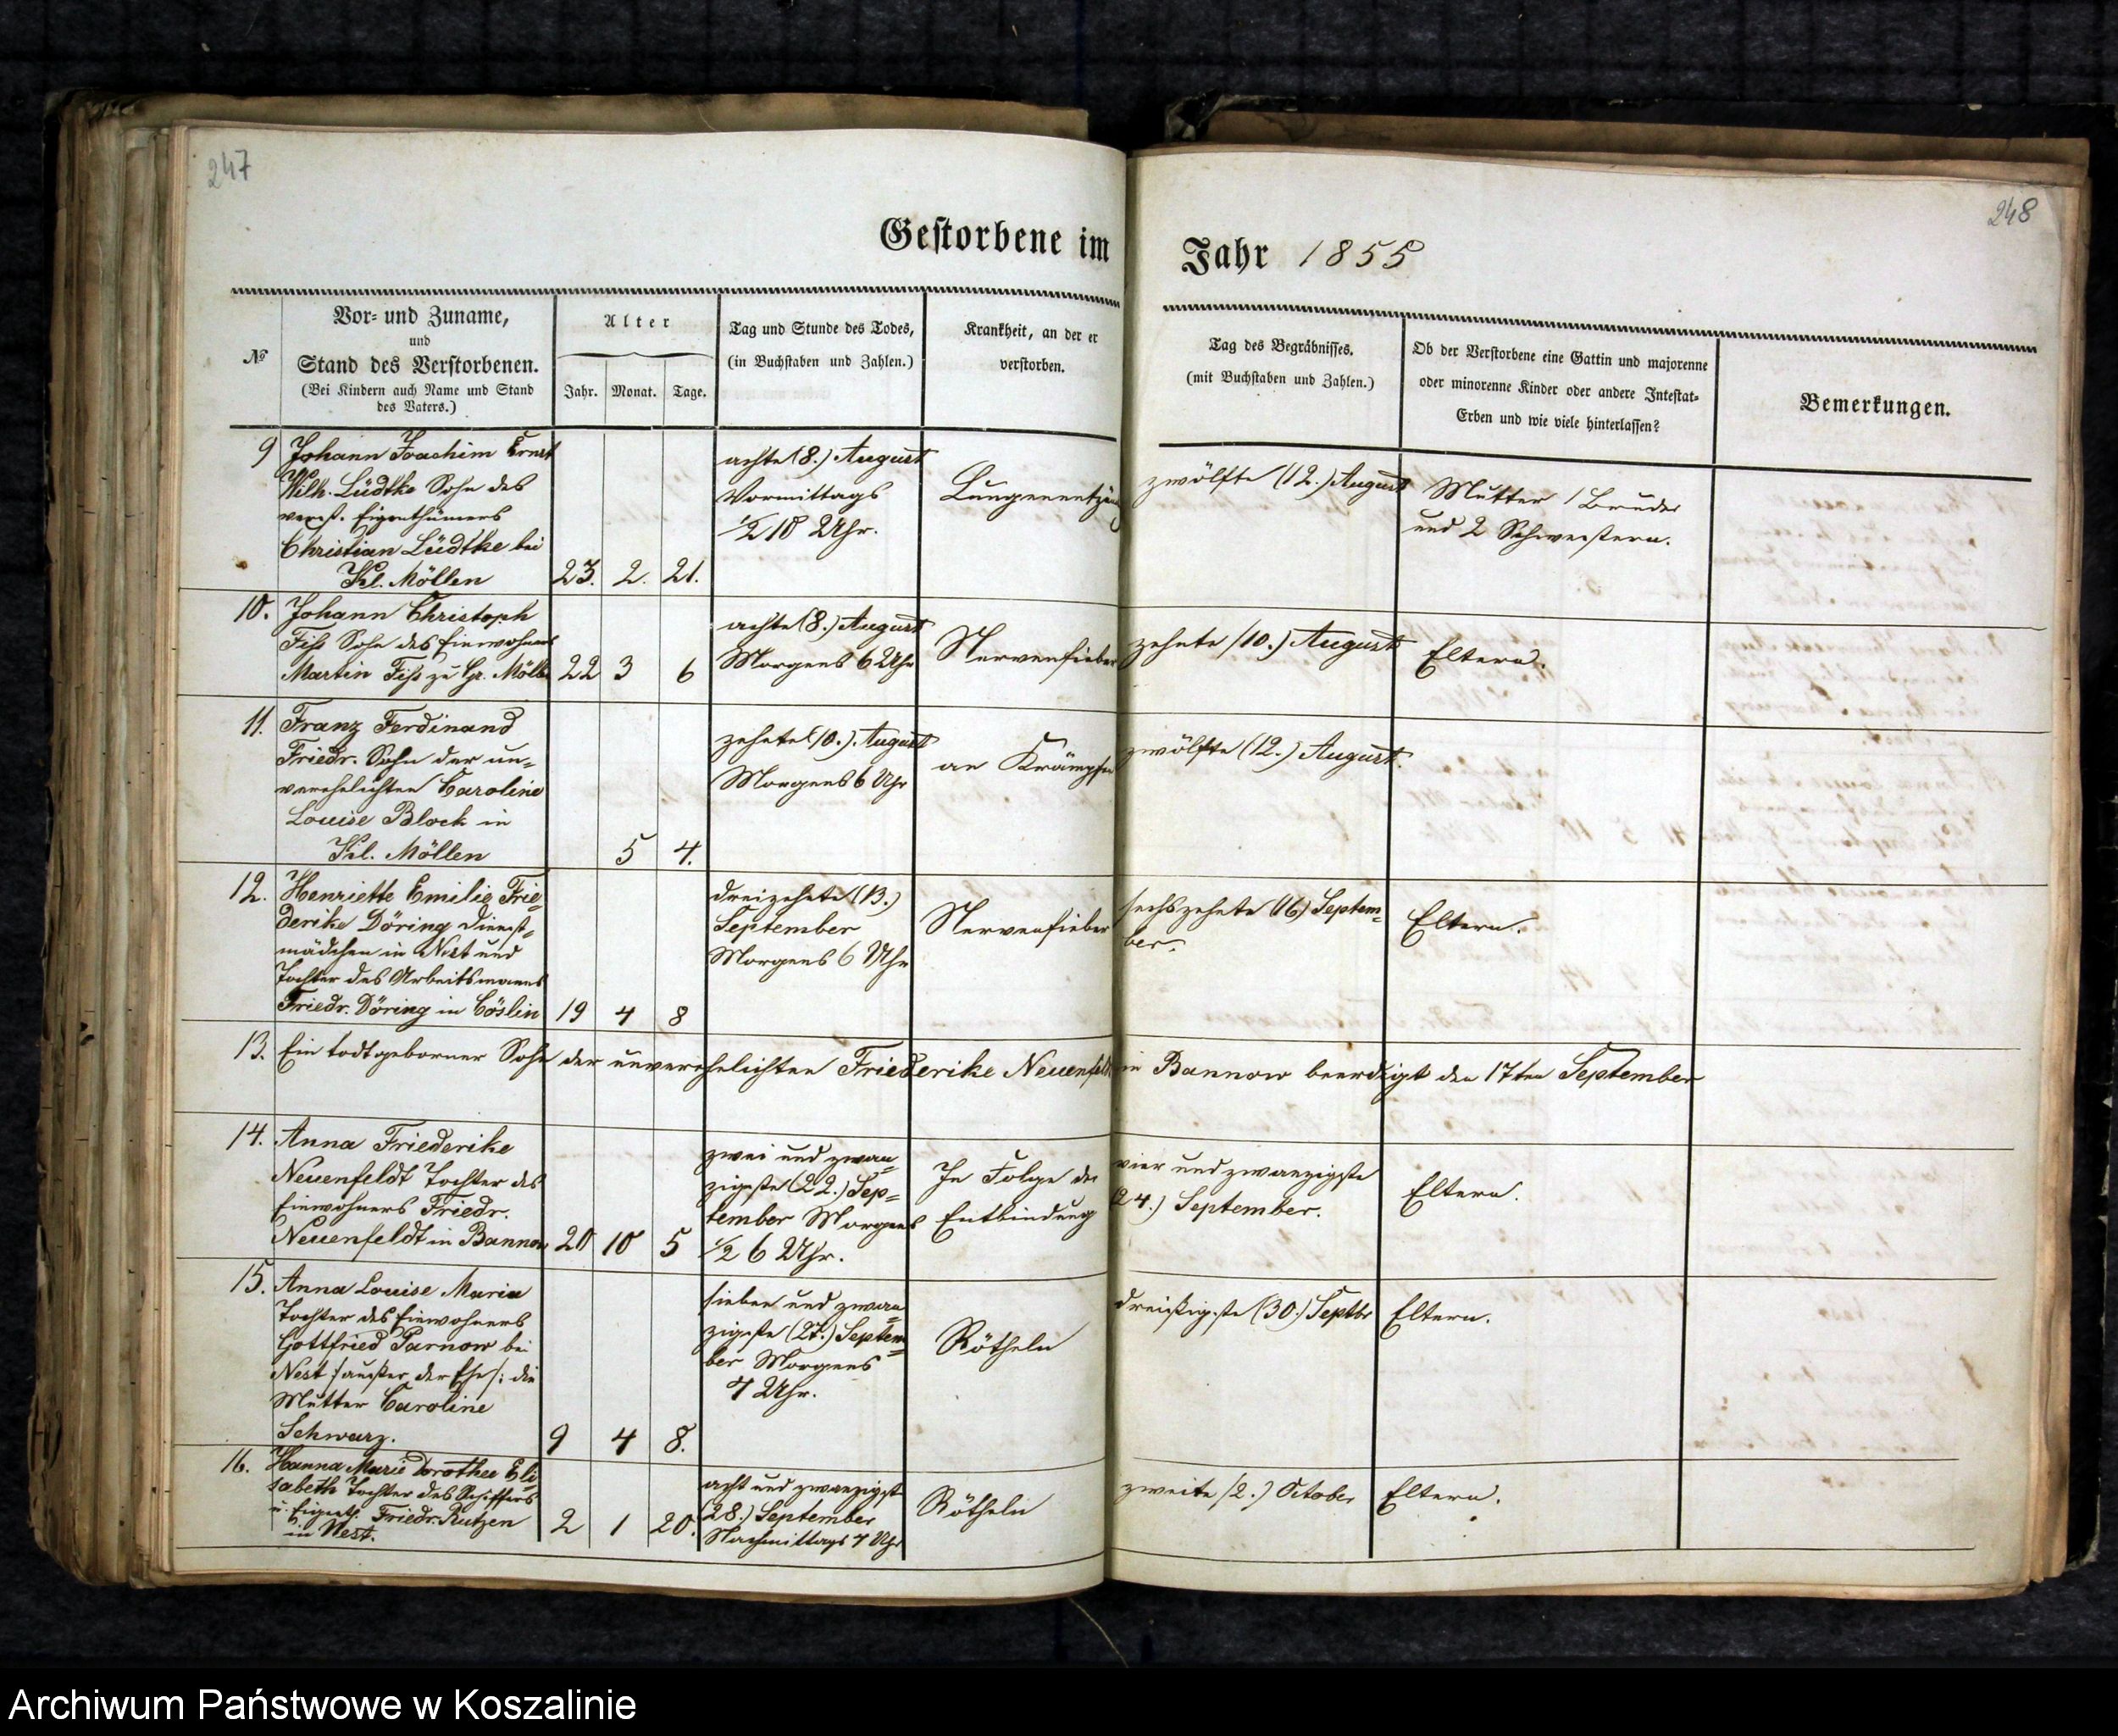 247
248
Gestorbene im
Jahr 1855
№
Vor- und Zuname,
und
Stand des Verstorbenen.
(Bei Kindern auch Name und Stand
des Vaters.)
Alter
Jahr. Monat. Tage.
Tag und Stunde des Todes,
(in Buchstaben und Zahlen.)
Krankheit, an der er
verstorben.
Tag des Begräbnisses.
(mit Buchstaben und Zahlen.)
Ob der Verstorbene eine Gattin und majorenne
oder minorenne Kinder oder andere Intestat-
Erben und wie viele hinterlassen?
Bemerkungen.
9 Johann Joachim Ernst
Wilh. Lüdtke Sohn des
verst. Eigenthümers
Christian Lüdtke bei
Kl. Möllen
23. 2. 21.
achte (8.) August
Vormittags
1/2 10 Uhr.
zwölfte (12.) August
Mutter 1 Bruder
und 2 Schwestern.
10. Johann Christoph
Fiß Sohn des Einwohners
Martin Fiß zu Gr. Möllen
22 3 6
achte (8.) August
Morgens 6 Uhr
Nervenfieber
zehnte (10.) August
Eltern.
11. Franz Ferdinand
Friedr. Sohn der un=
verehelichten Caroline
Louise Block in
Kl. Möllen
5 4.
zehnte (10.) August
Morgens 6 Uhr
an Krämpfen
zwölfte (12.) August.
12. Henriette Emilie Frie=
derike Döring Dienst=
mädchen in Nest und
Tochter des Arbeitsmanns
Friedr. Döring in Cöslin
19 4 8
dreizehnte (13.)
September
Morgens 6 Uhr
Nervenfieber
sechszehnte (16) Septem=
ber.
Eltern.
13. Ein todtgeborner Sohn der unverehelichten Friederike Neuenfeldt in Bannow beerdigt den 17ten September
14. Anna Friederike
Neuenfeldt Tochter des
Einwohners Friedr.
Neuenfeldt in Bannow
20 10 5
zwei und zwan=
zigste (22.) Sep=
tember Morgens
1/2 6 Uhr.
In Folge der
Entbindung
vier und zwanzigste
(24.) September.
Eltern.
15. Anna Louise Maria
Tochter des Einwohners
Gottfried Parnow bei
Nest /: außer der Ehe /: die
Mutter Caroline
Schwarz.
9 4 8.
sieben und zwan=
zigste (27.) Septem=
ber Morgens
7 Uhr.
Rötheln
dreißigste (30.) Septbr
Eltern.
16. Hanna Marie Dorothee Eli=
sabeth Tochter des Schiffers
u. Eigenth. Friedr. Rutzen
in Nest.
2 1 20.
acht und zwanzigste
(28.) September
Nachmittags 7 Uhr
Rötheln
zweite (2.) October
Eltern.
Archiwum Państwowe w Koszalinie